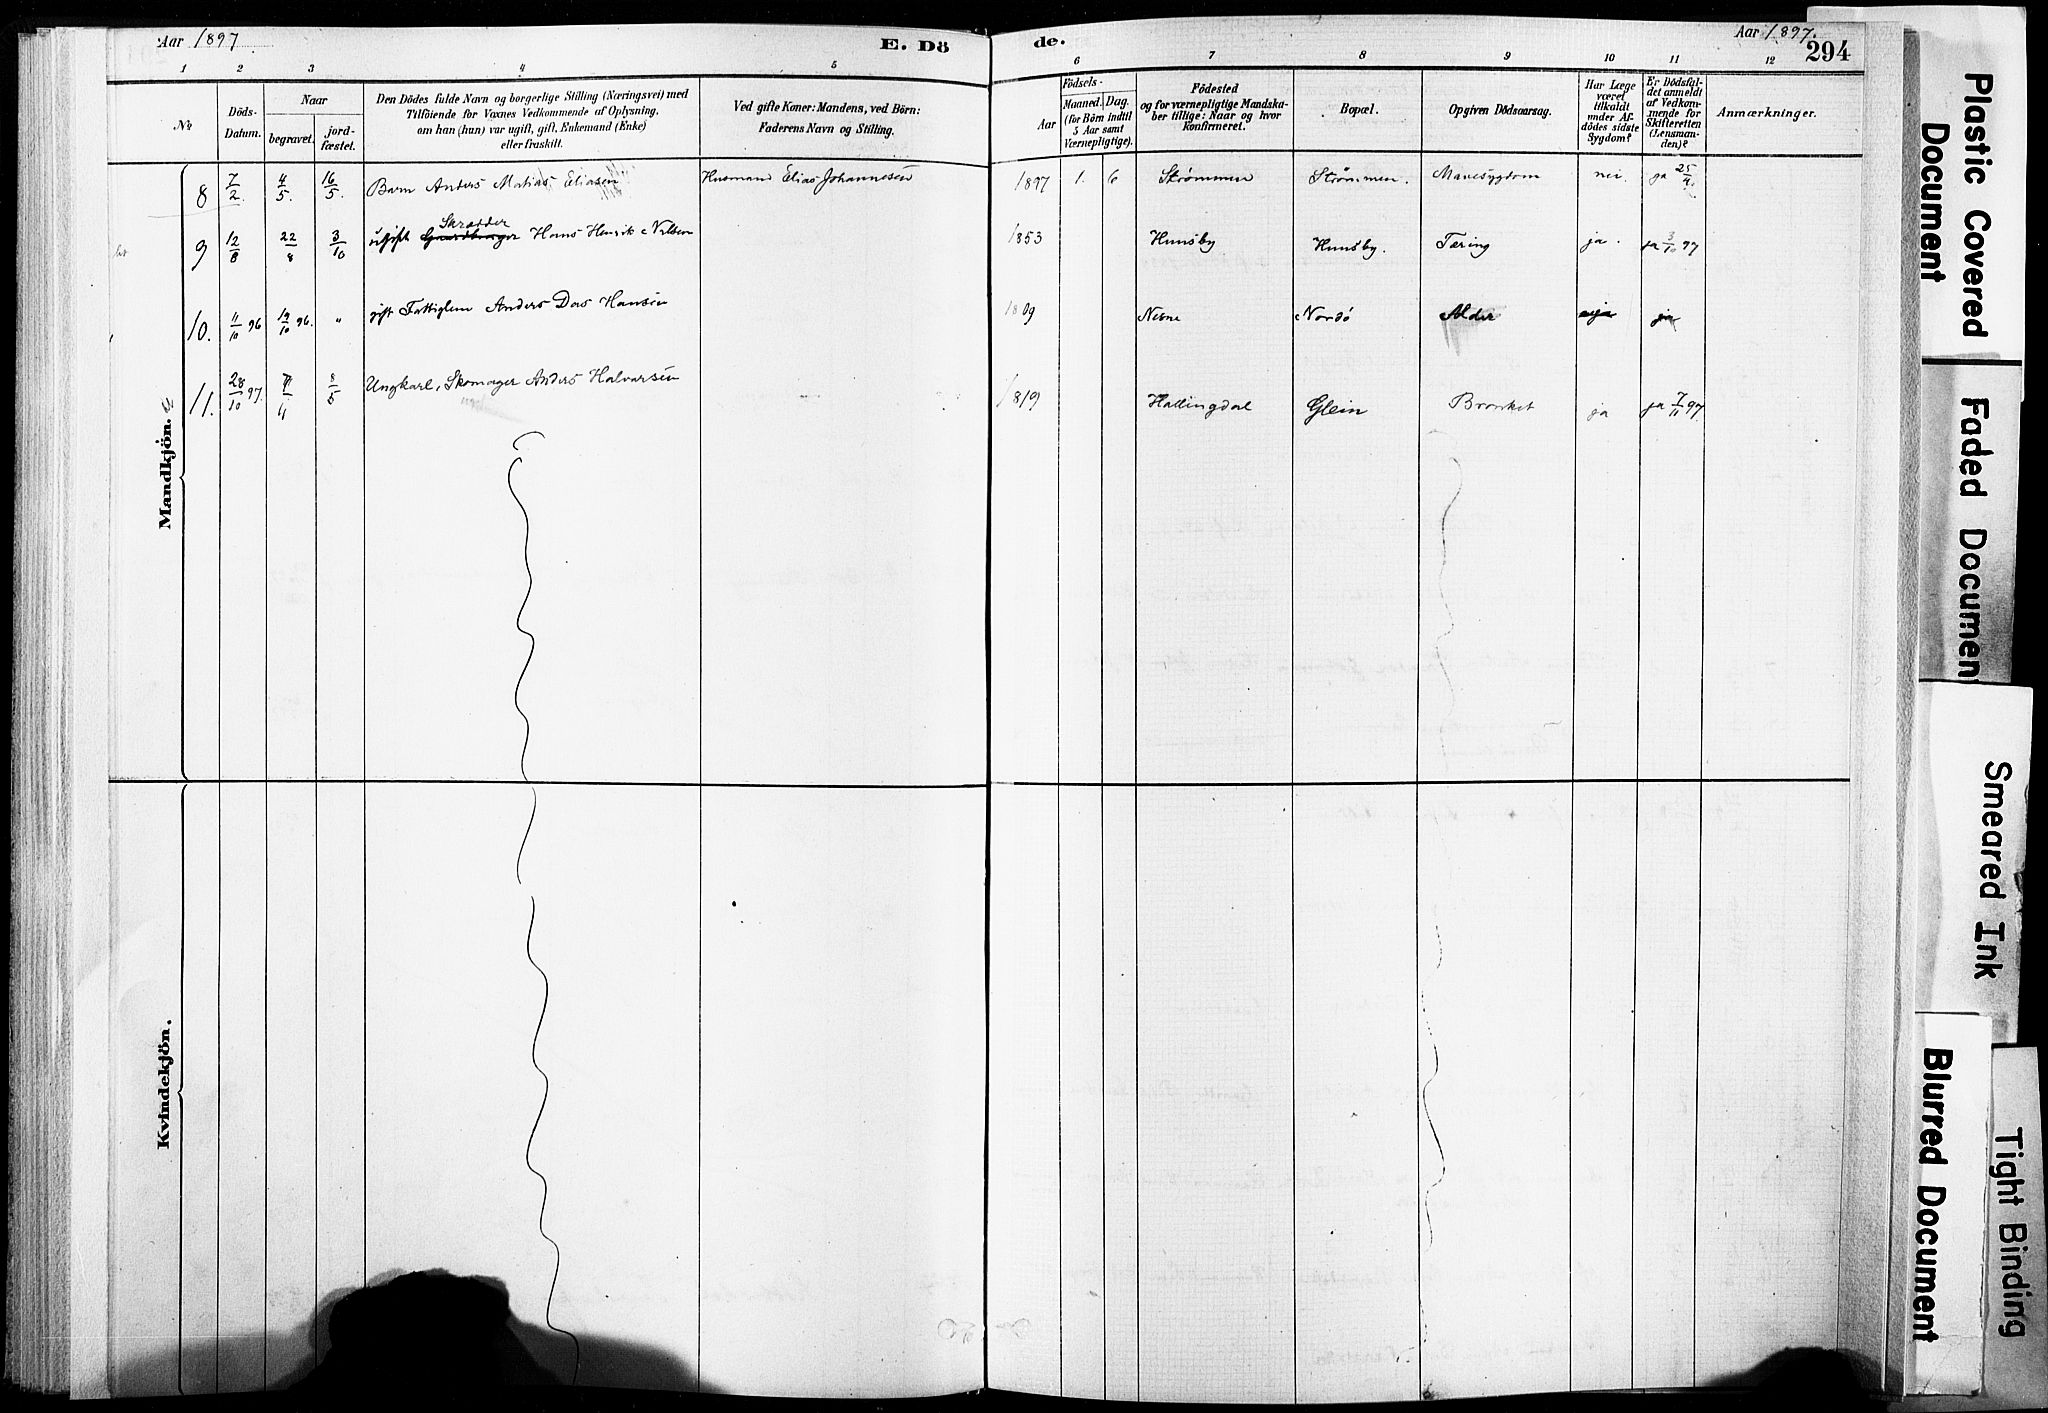 Aar 1897
E. Dö
de.
Aar 1897.
294
1 2 3 4 5 6 7 8 9 10 11 12
No
Döds-
Datum.
Naar
begravet.
jord-
fæstet.
Den Dödes fulde Navn og borgerlige Stilling (Næringsvei) med
Tilföiende for Voxnes Vedkommende af Oplysning,
om han (hun) var ugift, gift, Enkemand (Enke)
eller fraskilt.
Ved gifte Koner: Mandens, ved Börn:
Faderens Navn og Stilling.
Födsels-
Aar
Maaned. Dag.
(for Börn indtil
5 Aar samt
Værnepligtige).
Födested
og for værnepligtige Mandska-
ber tillige: Naar og hvor
konfirmeret.
Bopæl.
Opgiven Dödsaarsag.
Har Læge
været
tilkaldt
under Af-
dödes sidste
Sygdom?
Er Dödsfal-
det anmeldt
af Vedkom-
mende for
Skifteretten
(Lensman-
den)?
Anmærkninger.
Mandkjön.
8 7/2 4/5. 16/5. Barn Anders Matias Eliasen Husmand Elias Johannesen 1897 1. 6 Strømmen Strømmen. Mavesygdom nei. ja 25/4.
Skrædder
9 12/8 22/8 3/10 Gaardbruger Hans Henrik Nilsen 1853 Hunsby Hunsby. Tæring ja. ja 3/10 97
10. 11/10 96 19/10 96. " gift Fattiglem Anders Das Hansen 1809 Nesne Nordö Alder ja
11. 28/10 97. /11 8/5 Ungkarl, Skomager Anders Halvorsen 1819 Hallingdal Glein Bronket ja ja 7/11 97
Kvindekjön.
Plastic Covered
Document
Faded Document
Smeared Ink
Blurred Document
Tight Binding